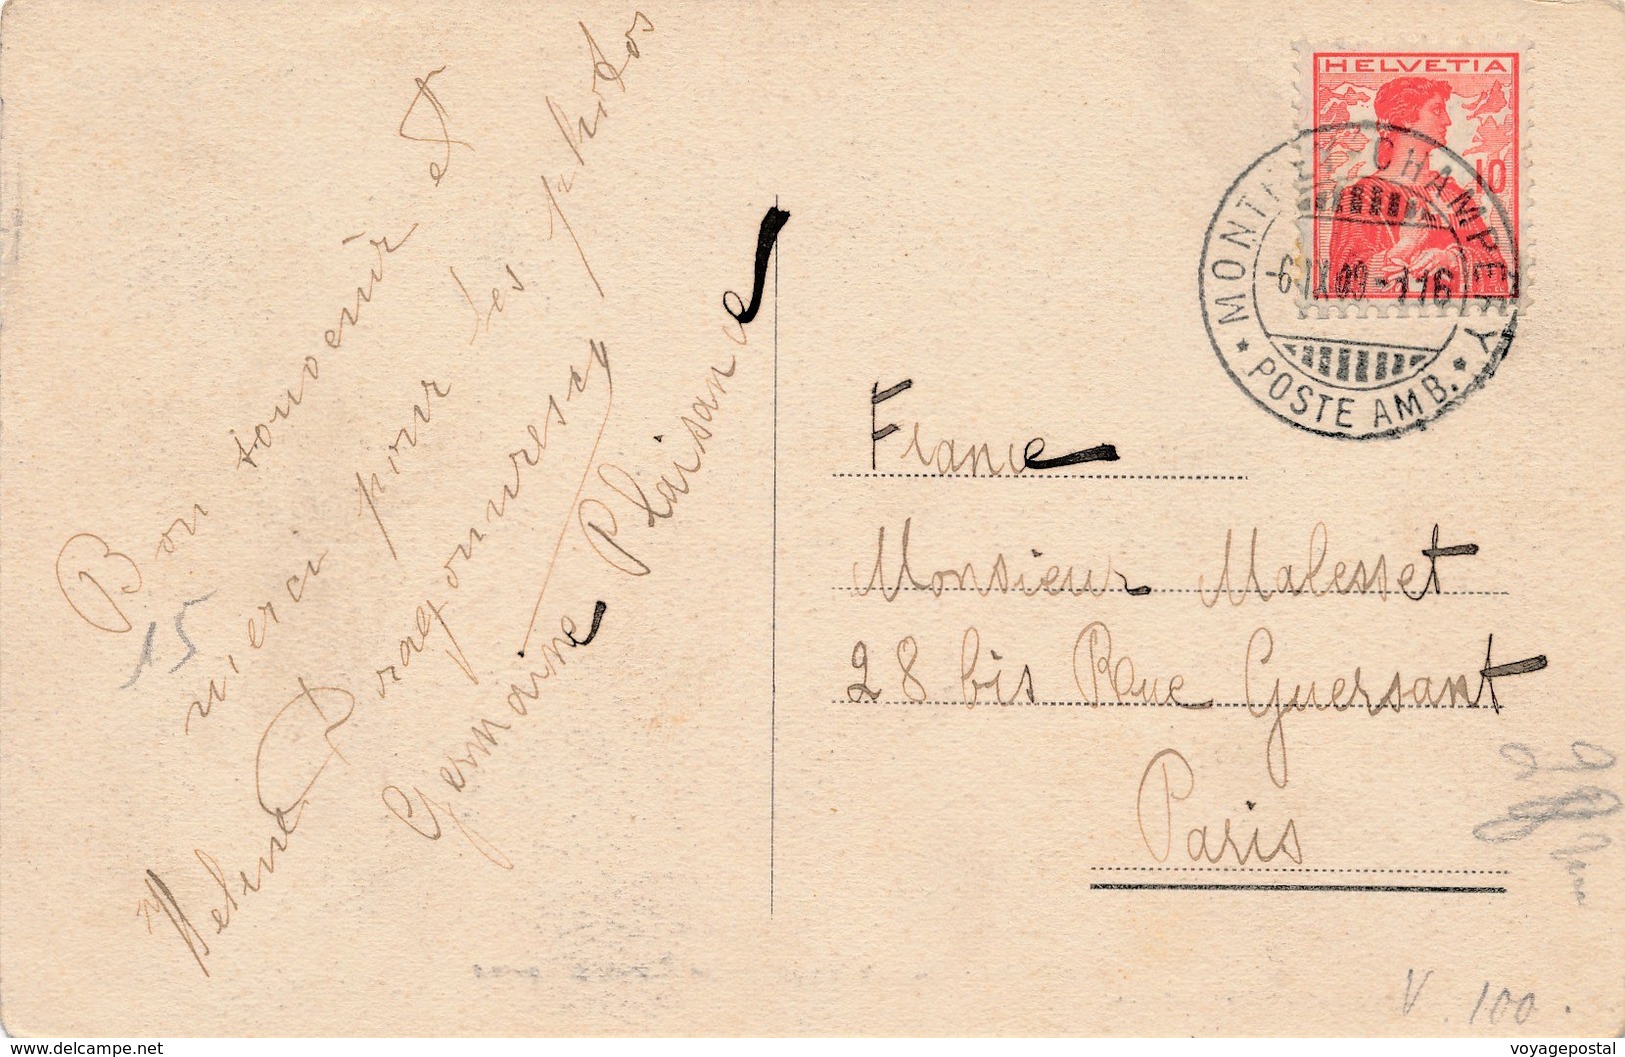 Bon souvenir et
merci pour les photos
Helene Dragomirescu
Germaine Plaisance
15
HELVETIA
10
MONTHEY-CHAMPERY
-6.IX.09-116
* POSTE AMB. *
France
Monsieur Malesset
28 bis Rue Guersant
Paris
V. 100.
www.delcampe.net
voyagepostal